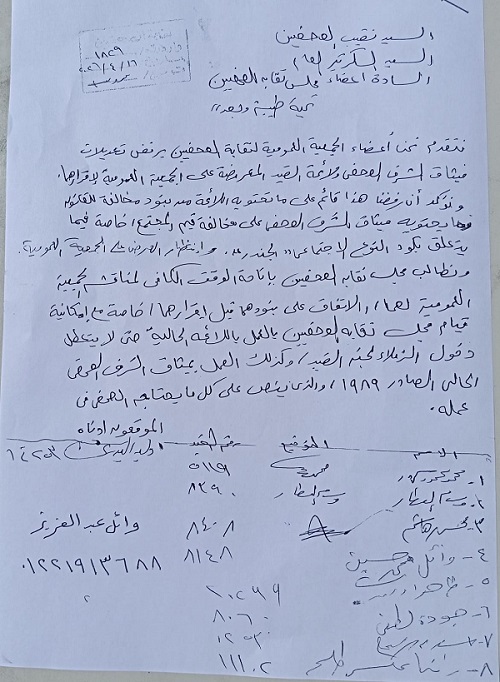 ١٨٥٩
٢٠٢٦/٤/١٦
السيد نقيب الصحفيين
السيد السكرتير العام
السادة أعضاء مجلس نقابة الصحفيين
تحية طيبة وبعد،،
نتقدم نحن أعضاء الجمعية العمومية لنقابة الصحفيين برفض تعديلات
ميثاق الشرف الصحفي ولائحة القيد المعروضة على الجمعية العمومية لإقرارها.
ونؤكد أن رفضنا هذا قائم على ما تحتويه اللائحة من بنود مخالفة للقانون
وما يحتويه ميثاق الشرف الصحفي على مخالفة قيم المجتمع / خاصة فيما
يتعلق بكود النوع الاجتماعي "الجندر". وانتظار العرض على الجمعية العمومية.
ونطالب مجلس نقابة الصحفيين بإتاحة الوقت الكافى لمناقشة الجمعية
العمومية لهما / الاتفاق على بنودهما قبل إقرارهما / خاصة مع إمكانية
قيام مجلس نقابة الصحفيين بالعمل باللائحة الحالية حتى لا يتعطل
دخول الزملاء لجنة القيد / وكذلك العمل بميثاق الشرف الصحفى
الحالى الصادر ١٩٨٩ / والذى ينص على كل ما يحتاجه الصحفى فى
عمله.
الموقعون أدناه
الاسم التوقيع رقم القيد
١- محمد محمود ٥١١٩
٢- وسام العطار وسام العطار ٨٣٩٠
٣- هاشم ٨٤٠٨ وائل عبد العزيز
٤- وائل حسين ٨١٤٨ ٠١٢٢١٩١٣٦٨٨
٥-
٦- جودة لطفى ٨٠٦٠
٧-
٨- رانيا ١١١٠٢